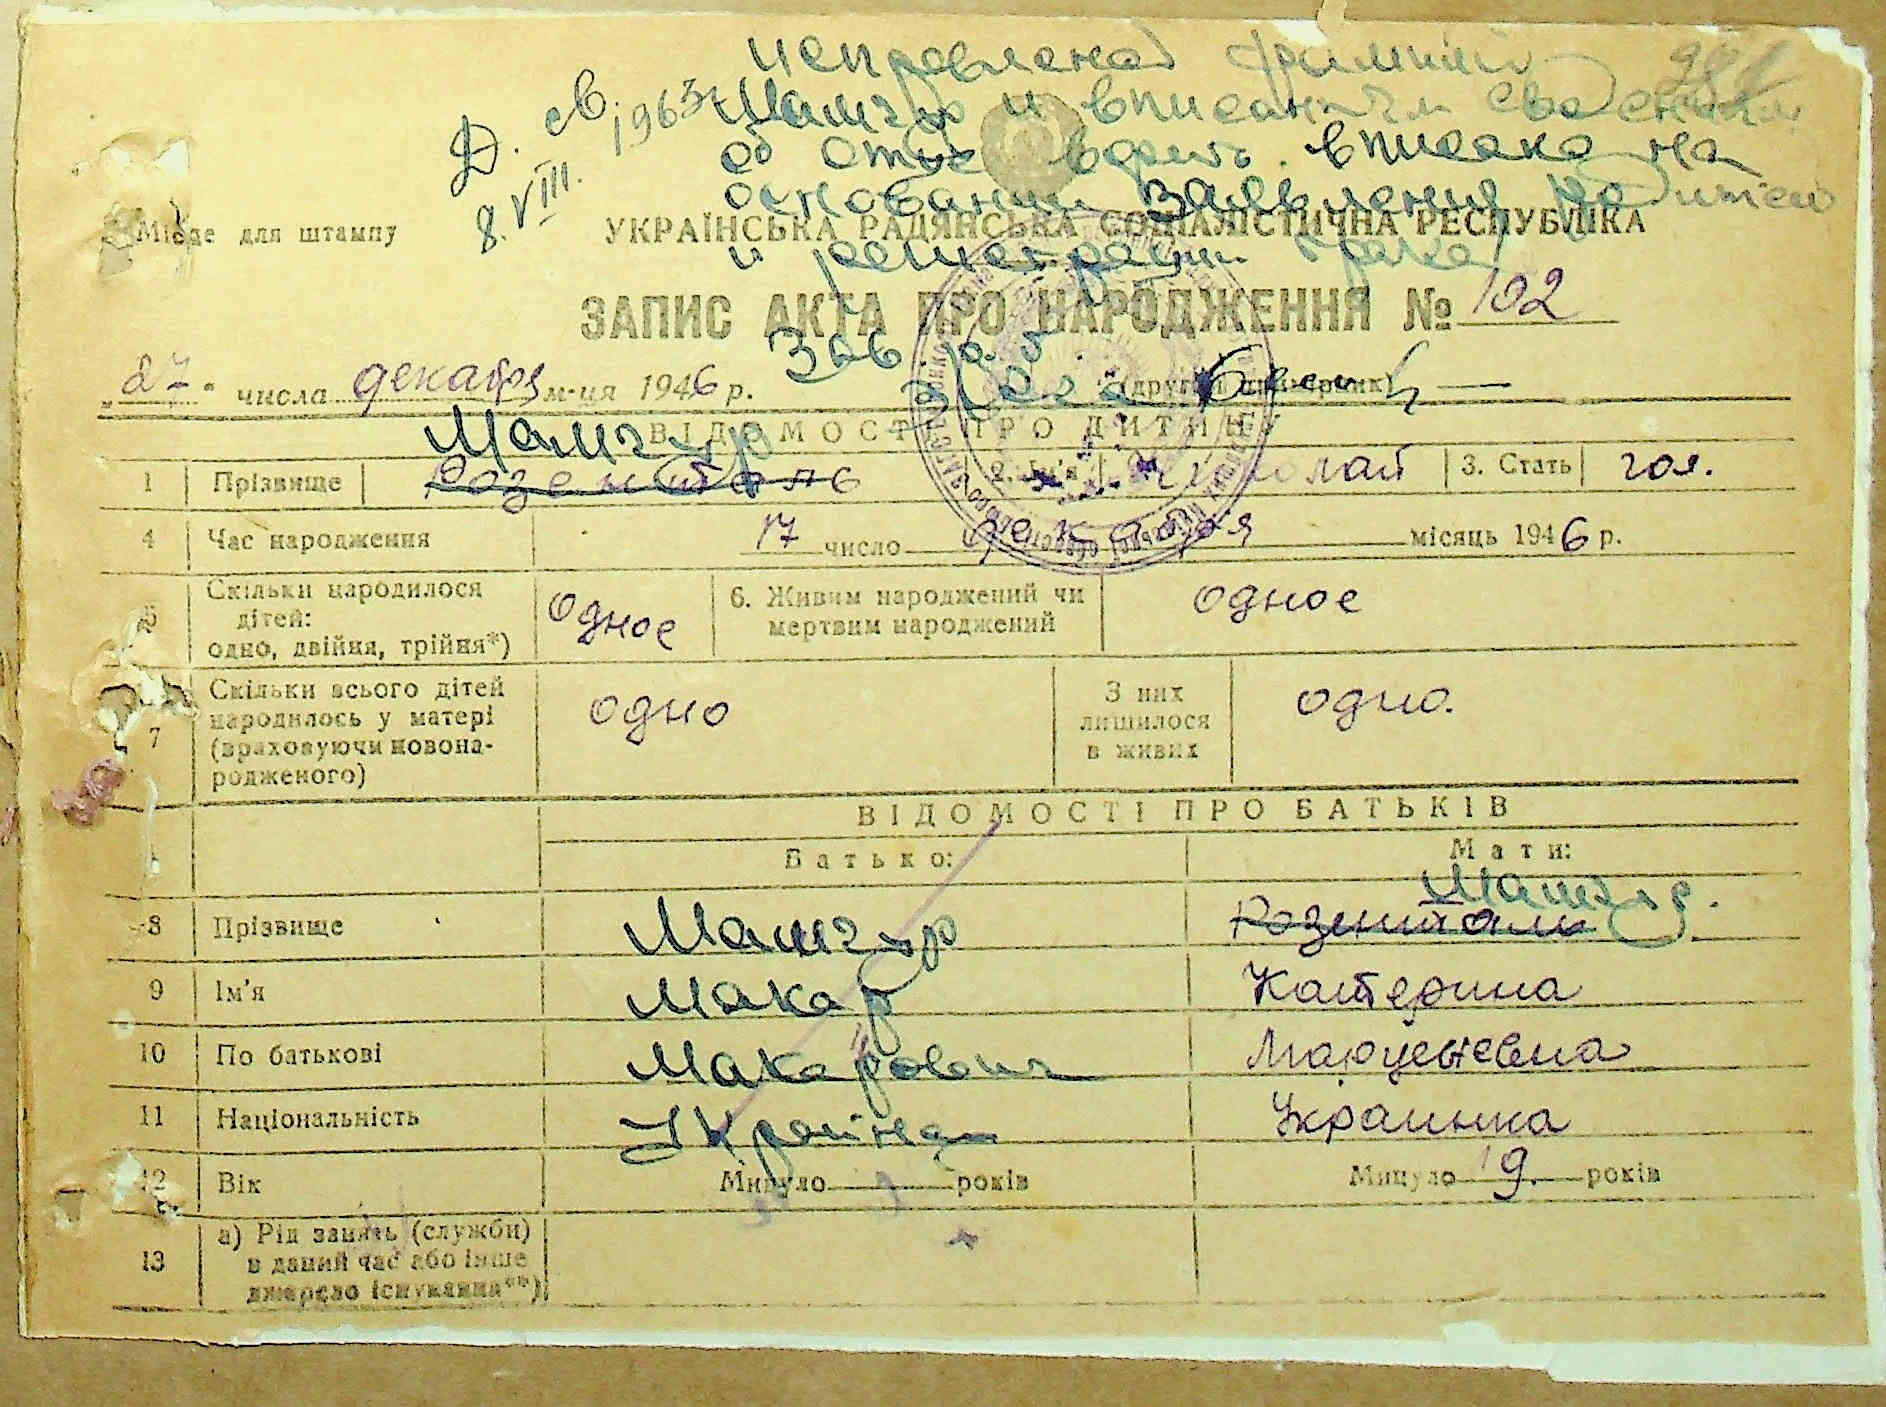 исправленой фамилии
Мамчур и вписанием сведений
об отце вдесь вписано на
основании заявления родителей
и регистрации брака
Д. св. 1963
8. VIII.
Місце для штампу
УКРАЇНСЬКА РАДЯНСЬКА СОЦІАЛІСТИЧНА РЕСПУБЛІКА
ЗАПИС АКТА ПРО НАРОДЖЕННЯ № 102
Зав.
„27“ числа декабря м-ця 1946 р. (другий примірник)
ВІДОМОСТІ ПРО ДИТИНУ
Мамчур
1 Прізвище Розенталь 2. Ім'я Николай 3. Стать чол.
4 Час народження 17 число декабря місяць 1946 р.
5 Скільки народилося дітей: одно, двійня, трійня*) Одное 6. Живим народжений чи мертвим народжений Одное
7 Скільки всього дітей народилось у матері (враховуючи новонародженого) одно З них лишилося в живих одно.
ВІДОМОСТІ ПРО БАТЬКІВ
Батько: Мати:
Мамчур.
8 Прізвище Мамчур Розенталь
9 Ім'я Макар Катерина
10 По батькові Макарович
11 Національність Українец Украинка
12 Вік Минуло років Минуло 19. років
13 а) Рід занять (служби) в даний час або інше джерело існування**)